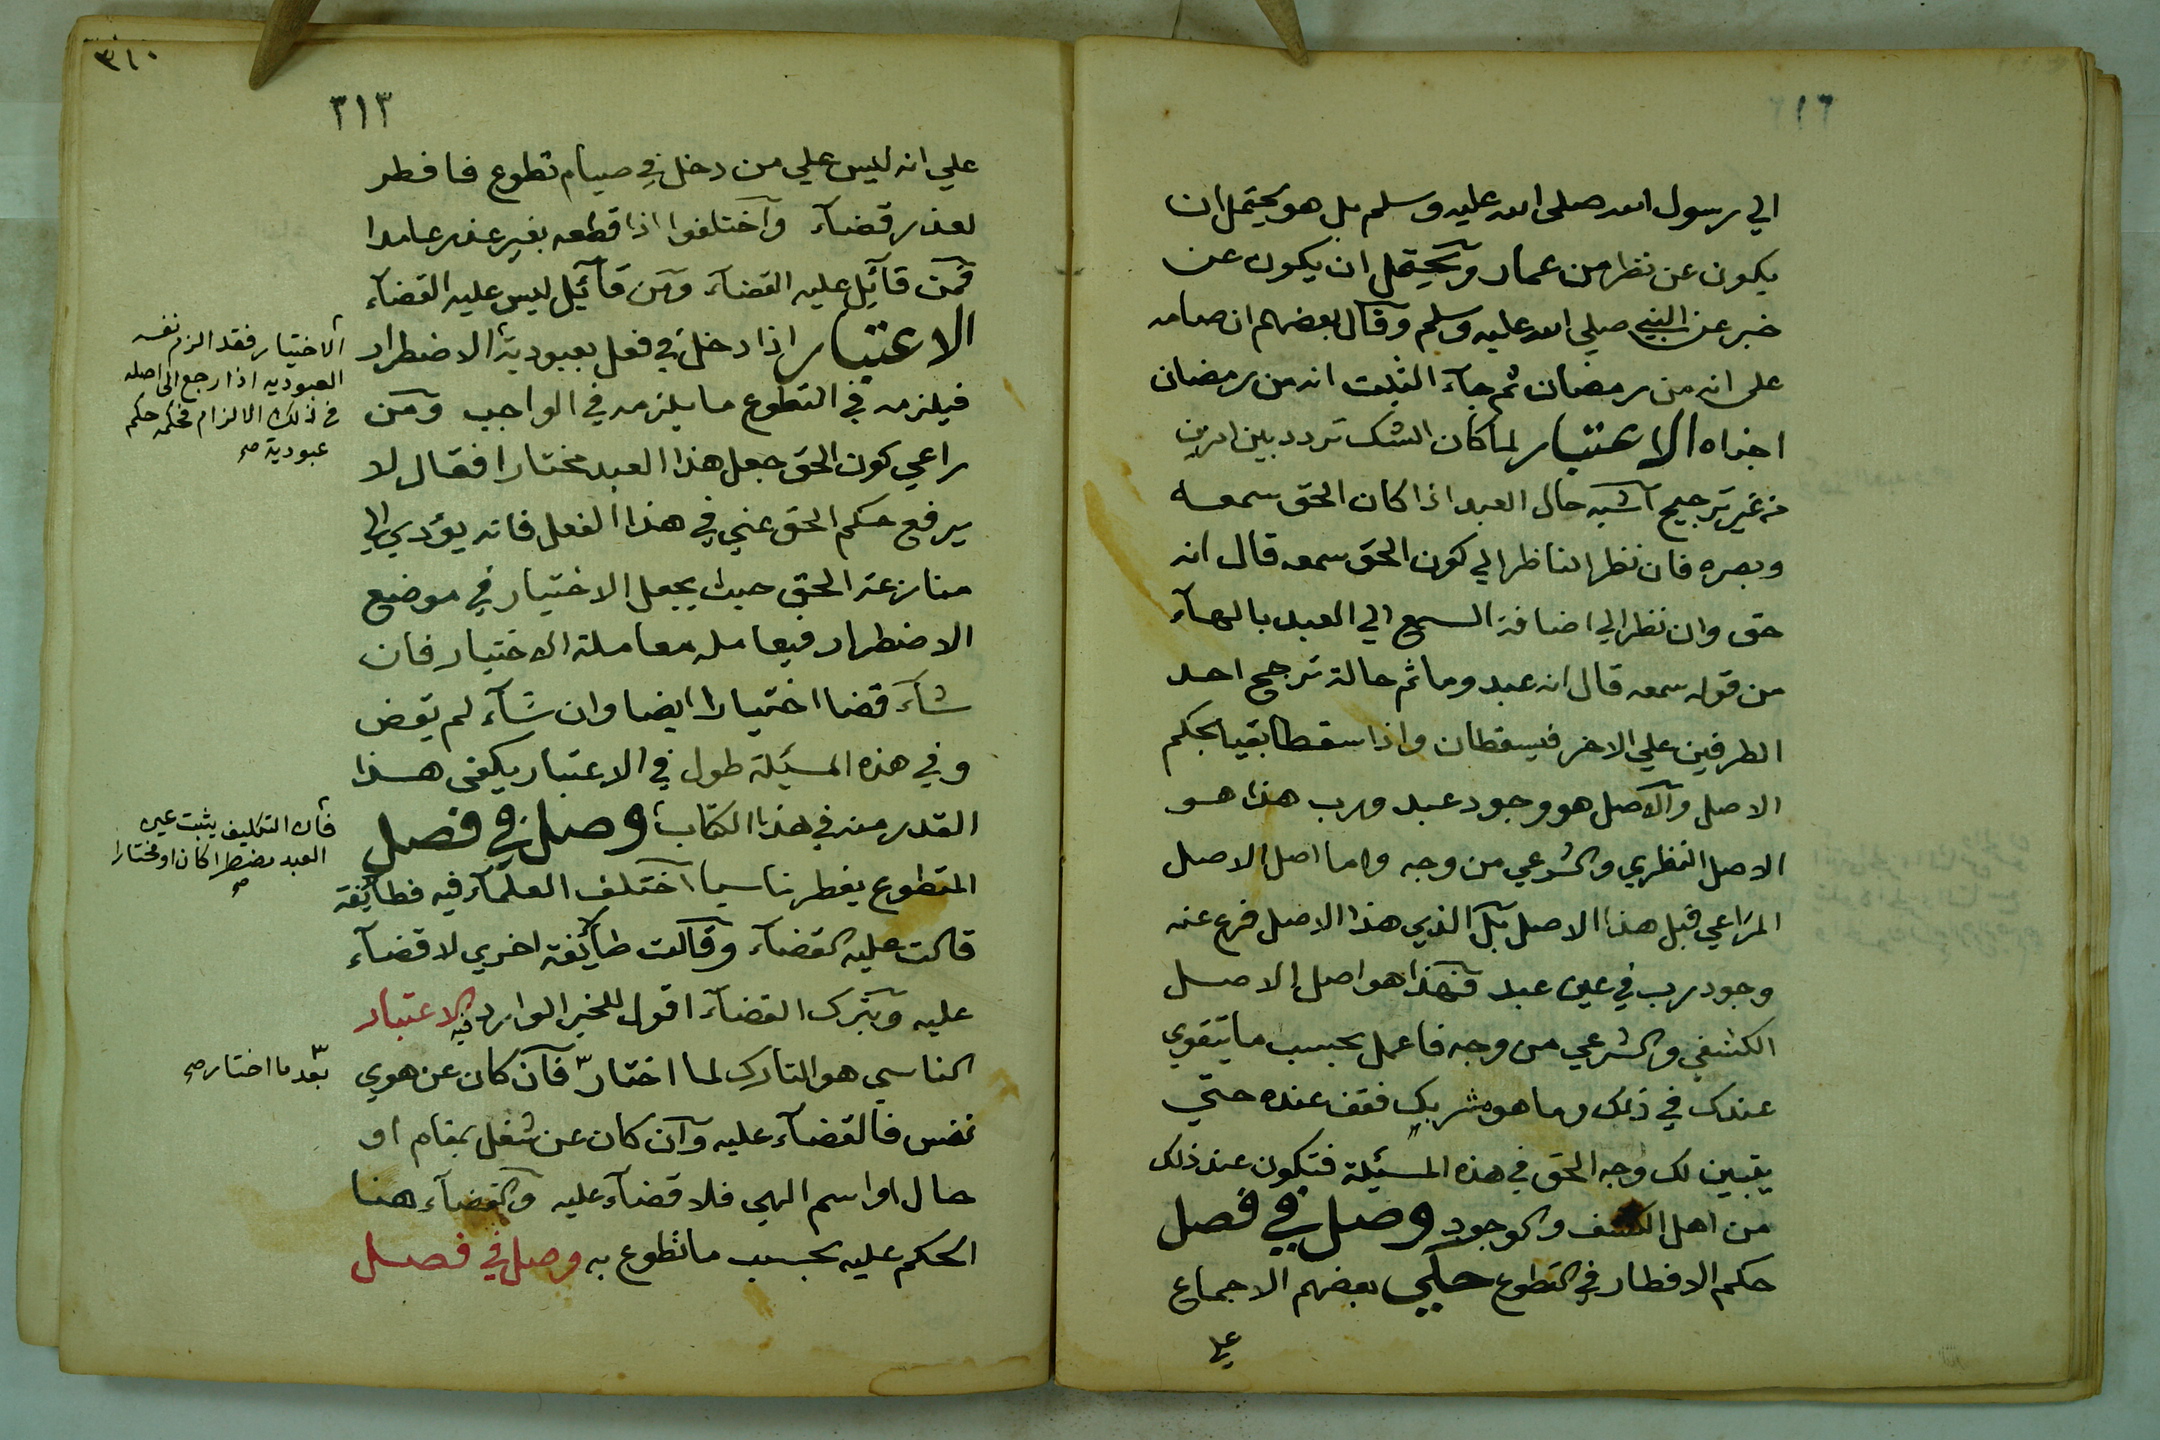 الي رسول الله صلى الله عليه وسلم بل هو يحتمل ان
يكون عن نظر من عمار ويحتمل ان يكون عن
خبر عن النبي صلي الله عليه وسلم وقال بعضهم ان صامه
على انه من رمضان ثم جآء الثبت انه من رمضان
اجزاه الاعتبار لما كان الشك تردد بين امرين
من غير ترجيح اشبه حال العبد اذا كان الحق سمعه
وبصره فان نظر الناظر الي كون الحق سمعه قال انه
حق وان نظر الي اضافة السمع الي العبد بالهآء
من قوله سمعه قال انه عبد وما ثم حالة ترجح احد
الطرفين علي الاخر فيسقطان واذا سقطا بقيا بحكم
الاصل والاصل هو وجود عبد ورب هذا هو
الاصل النظري والشرعي من وجه واما اصل الاصل
المراعي قبل هذا الاصل بل الذي هذا الاصل فرع عنه
وجود رب في عين عبد فهذا هو اصل الاصل
الكشفي والشرعي من وجه فاعمل بحسب ما يتقوي
عندك في ذلك وما هو مشربك فقف عنده حتي
يتبين لك وجه الحق في هذه المسئلة فتكون عند ذلك
من اهل الكشف والوجود وصل في فصل
حكم الافطار في التطوع حكي بعضهم الاجماع
علي
٣١٠
٣١٣
علي انه ليس علي من دخل في صيام تطوع فافطر
لعذر قضآء واختلفوا اذا قطعه بغير عذر عامدا
فمن قآئل عليه القضآء ومن قآئل ليس عليه القضآء
الاعتبار اذا دخل في فعل بعبودية الاضطرار
فيلزمه في التطوع ما يلزمه في الواجب ومن
راعي كون الحق جعل هذا العبد مختارا فقال لا
يرفع حكم الحق عني في هذا الفعل فانه يؤدي الي
منازعة الحق حيث يجعل الاختيار في موضع
الاضطرار فيعامله معاملة الاختيار فان
شآء قضا اختيارا ايضا وان شآء لم يقض
وفي هذه المسئلة طول في الاعتبار يكفى هذا
القدر منه في هذا الكتاب وصل في فصل
المتطوع يفطر ناسيا اختلف العلمآء فيه فطآئفة
قالت عليه القضآء وقالت طآئفة اخري لا قضآء
عليه وبترك القضآء اقول للخبر الوارد فيه الاعتبار
الناسي هو التارك لما اختار فان كان عن هوي
نفس فالقضآء عليه وان كان عن شغل بمقام او
حال او اسم الهي فلا قضآء عليه والقضآء هنا
الحكم عليه بحسب ما تطوع به وصل في فصل
الاختيار فقد الزم نفسه
العبوديه اذا رجع الى اصله
في ذلك الالزام فحكمه حكم
عبودية صح
فان التكليف يثبت عين
العبد مضطرا كان او مختارا
صح
بعد ما اختار صح